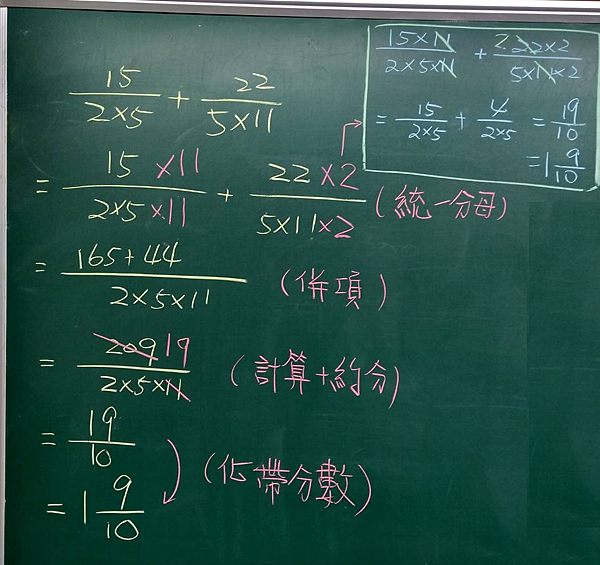 15/(2×5) + 22/(5×11)
= (15×11)/(2×5×11) + (22×2)/(5×11×2) (統一分母)
= (165+44)/(2×5×11) (併項)
= 209 19/(2×5×11) (計算+約分)
= 19/10
= 1 9/10 (化帶分數)
(15×11)/(2×5×11) + 2 (22×2)/(5×11×2)
= 15/(2×5) + 4/(2×5) = 19/10
= 1 9/10